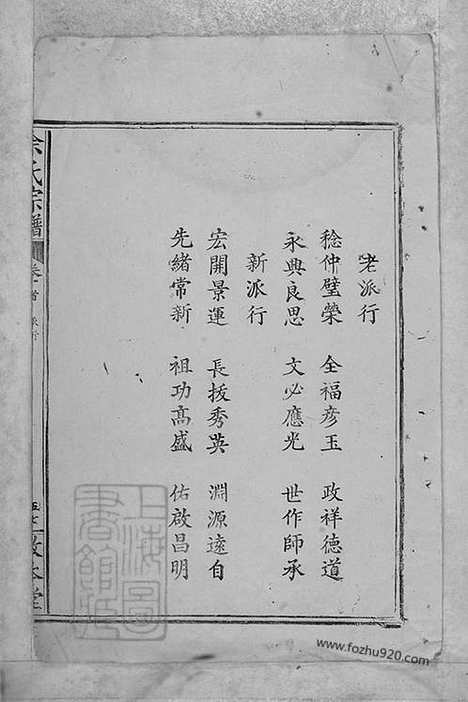 老派行
稔仲璧榮 全福彦玉 政祥德道
永興良思 文必應光 世作師承
新派行
宏開景運 長拔秀英 淵源遠自
先緒常新 祖功高盛 佑啟昌明
余氏宗譜 卷首 派行
上海圖書館藏
www.fozhu920.com